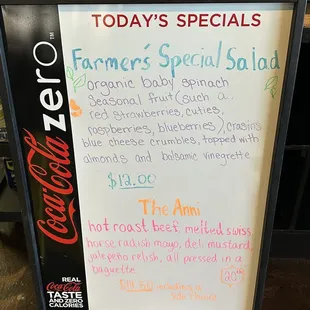 TODAY'S SPECIALS
Coca-Cola zero
TM
Farmer's Special Salad
Organic baby spinach
Seasonal fruit (such a..
red strawberries, cuties,
raspberries, blueberries) crasins
blue cheese crumbles, topped with
almonds and balsamic vinegrette
$12.00
The Anni
hot roast beef, melted swiss
horse radish mayo, deli mustard
jalepeño relish, all pressed in a
baguette
REAL
Coca-Cola
TASTE
AND ZERO
CALORIES